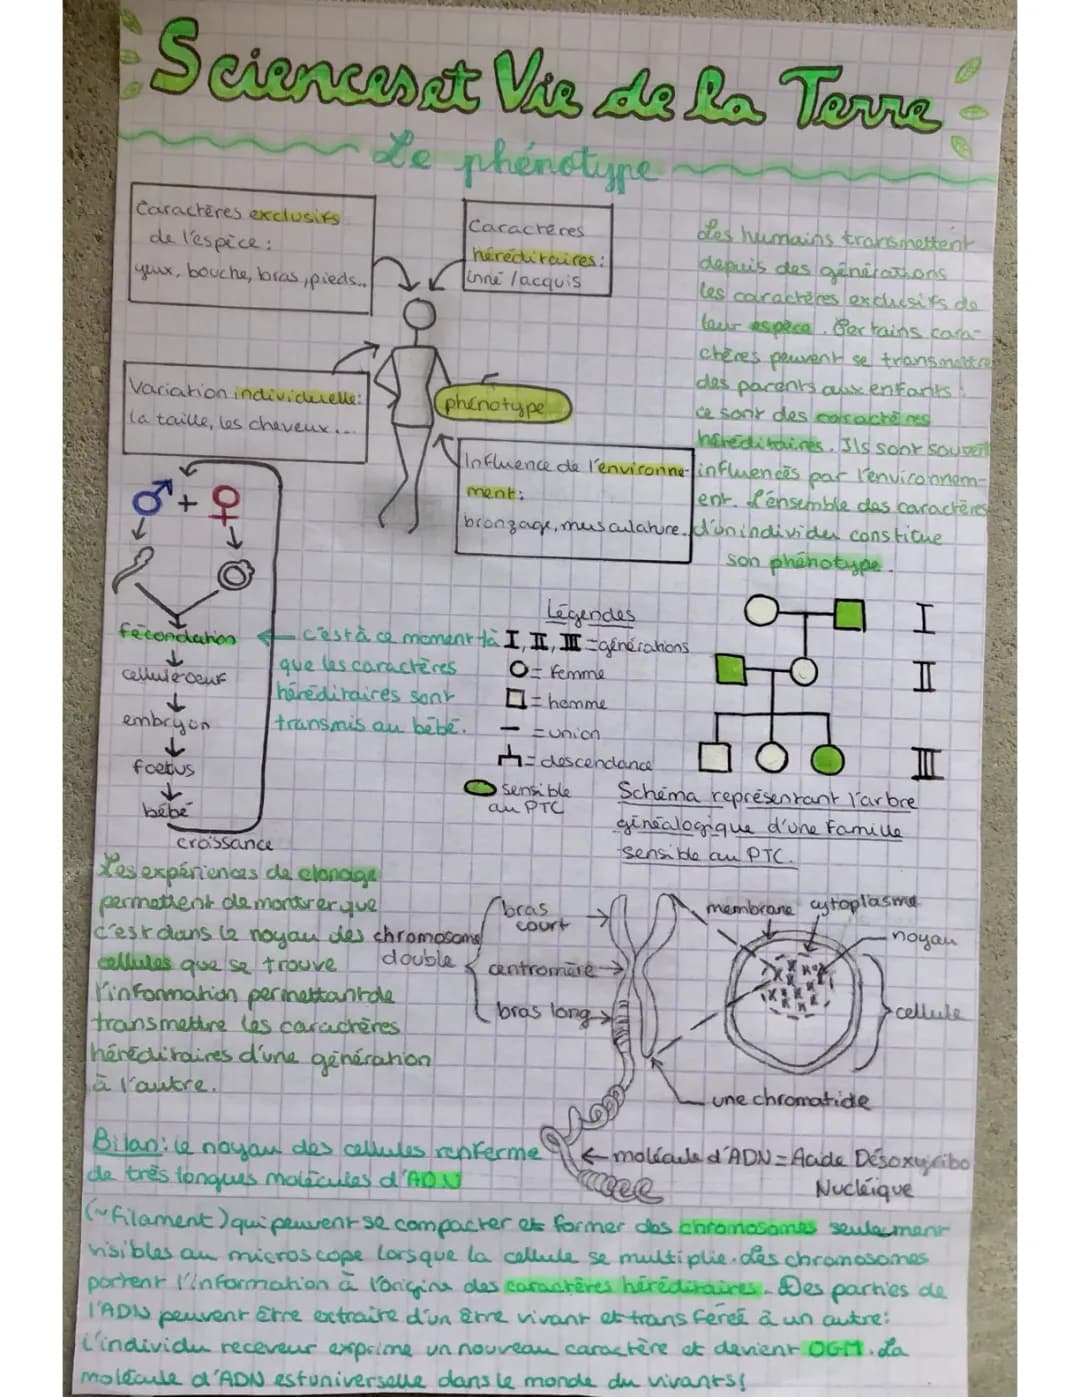 Sciences et Vie de la Terre
Le phénotype
Caractères exclusifs
de l'espèce :
yeux, bouche, bras, pieds...
Caractères
héréditaires :
inné / acquis
Variation individuelle :
la taille, les cheveux...
phénotype
Influence de l'environne-
ment :
bronzage, musculature.
Les humains transmettent
depuis des générations
les caractères exclusifs de
leur espèce. Certains cara-
ctères peuvent se transmettre
des parents aux enfants :
ce sont des caractères
héréditaires. Ils sont souvent
influencés par l'environnem-
ent. L'ensemble des caractères
d'un individu constitue
son phénotype.
♂ + ♀
fécondation
cellule oeuf
embryon
foetus
bébé
croissance
c'est à ce moment là
que les caractères
héréditaires sont
transmis au bébé.
Légendes
I, II, III = générations
= femme
= homme
= union
= descendance
sensible
au PTC
I
II
III
Schéma représentant l'arbre
généalogique d'une famille
sensible au PTC.
Les expériences de clonage
permettent de montrer que
c'est dans le noyau des
cellules que se trouve
l'information permettant de
transmettre les caractères
héréditaires d'une génération
à l'autre.
chromosome
double
bras
court
centromère
bras long
membrane
cytoplasme
noyau
cellule
une chromatide
molécule d'ADN = Acide Désoxyribo
Nucléique
Bilan : le noyau des cellules renferme
de très longues molécules d'ADN
(~filament) qui peuvent se compacter et former des chromosomes seulement
visibles au microscope lorsque la cellule se multiplie. Les chromosomes
portent l'information à l'origine des caractères héréditaires. Des parties de
l'ADN peuvent être extraite d'un être vivant et transférée à un autre :
L'individu receveur exprime un nouveau caractère et devient OGM. La
molécule d'ADN est universelle dans le monde du vivants !